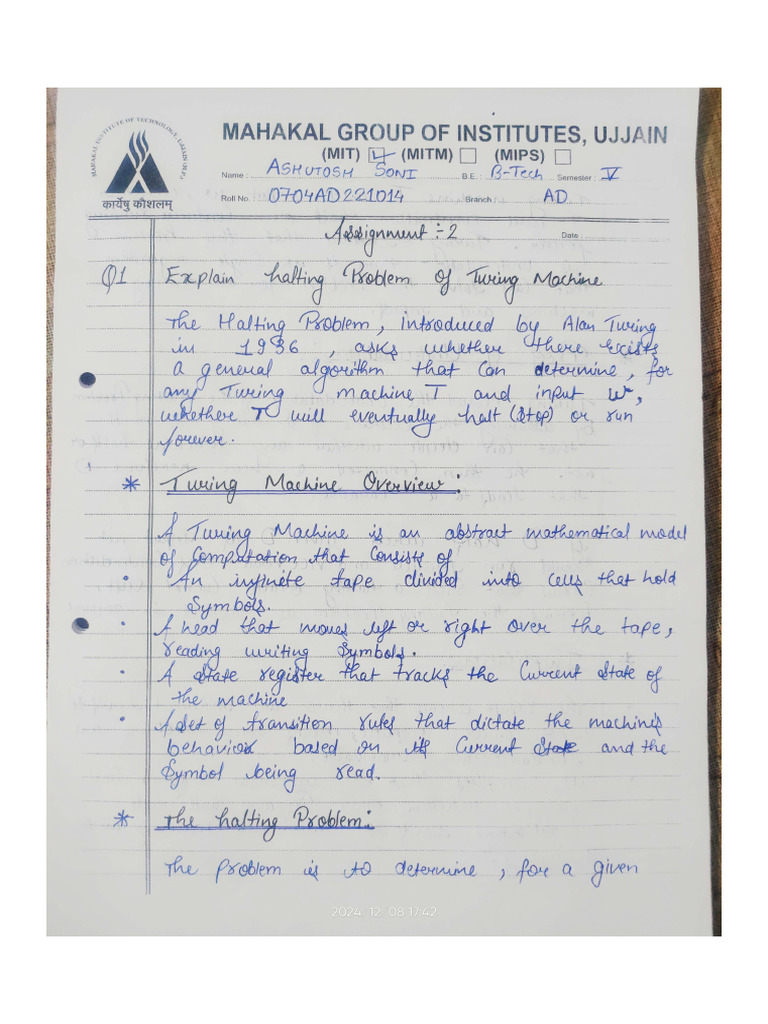 MAHAKAL INSTITUTE OF TECHNOLOGY, UJJAIN (M.P.)
कार्येषु कौशलम्
MAHAKAL GROUP OF INSTITUTES, UJJAIN
(MIT) ☑ (MITM) ☐ (MIPS) ☐
Name : ASHUTOSH SONI B.E. B-Tech Semester : V
Roll No. 0704AD221014 Branch : AD
Assignment :- 2 Date :
Q1 Explain halting Problem of Turing Machine
The Halting Problem, introduced by Alan Turing
in 1936, asks whether there exists
a general algorithm that can determine, for
any Turing machine T and input w,
whether T will eventually halt (stop) or run
forever.
* Turing Machine Overview :
A Turing Machine is an abstract mathematical model
of Computation that Consists of
• An infinite tape divided into cells that hold
Symbols.
• A head that moves left or right over the tape,
reading writing Symbols.
• A state register that tracks the Current State of
the machine
• A Set of transition rules that dictate the machine's
behavior based on its Current State and the
Symbol being read.
* The halting Problem :
The problem is to determine, for a given
2024-12-08 17:42